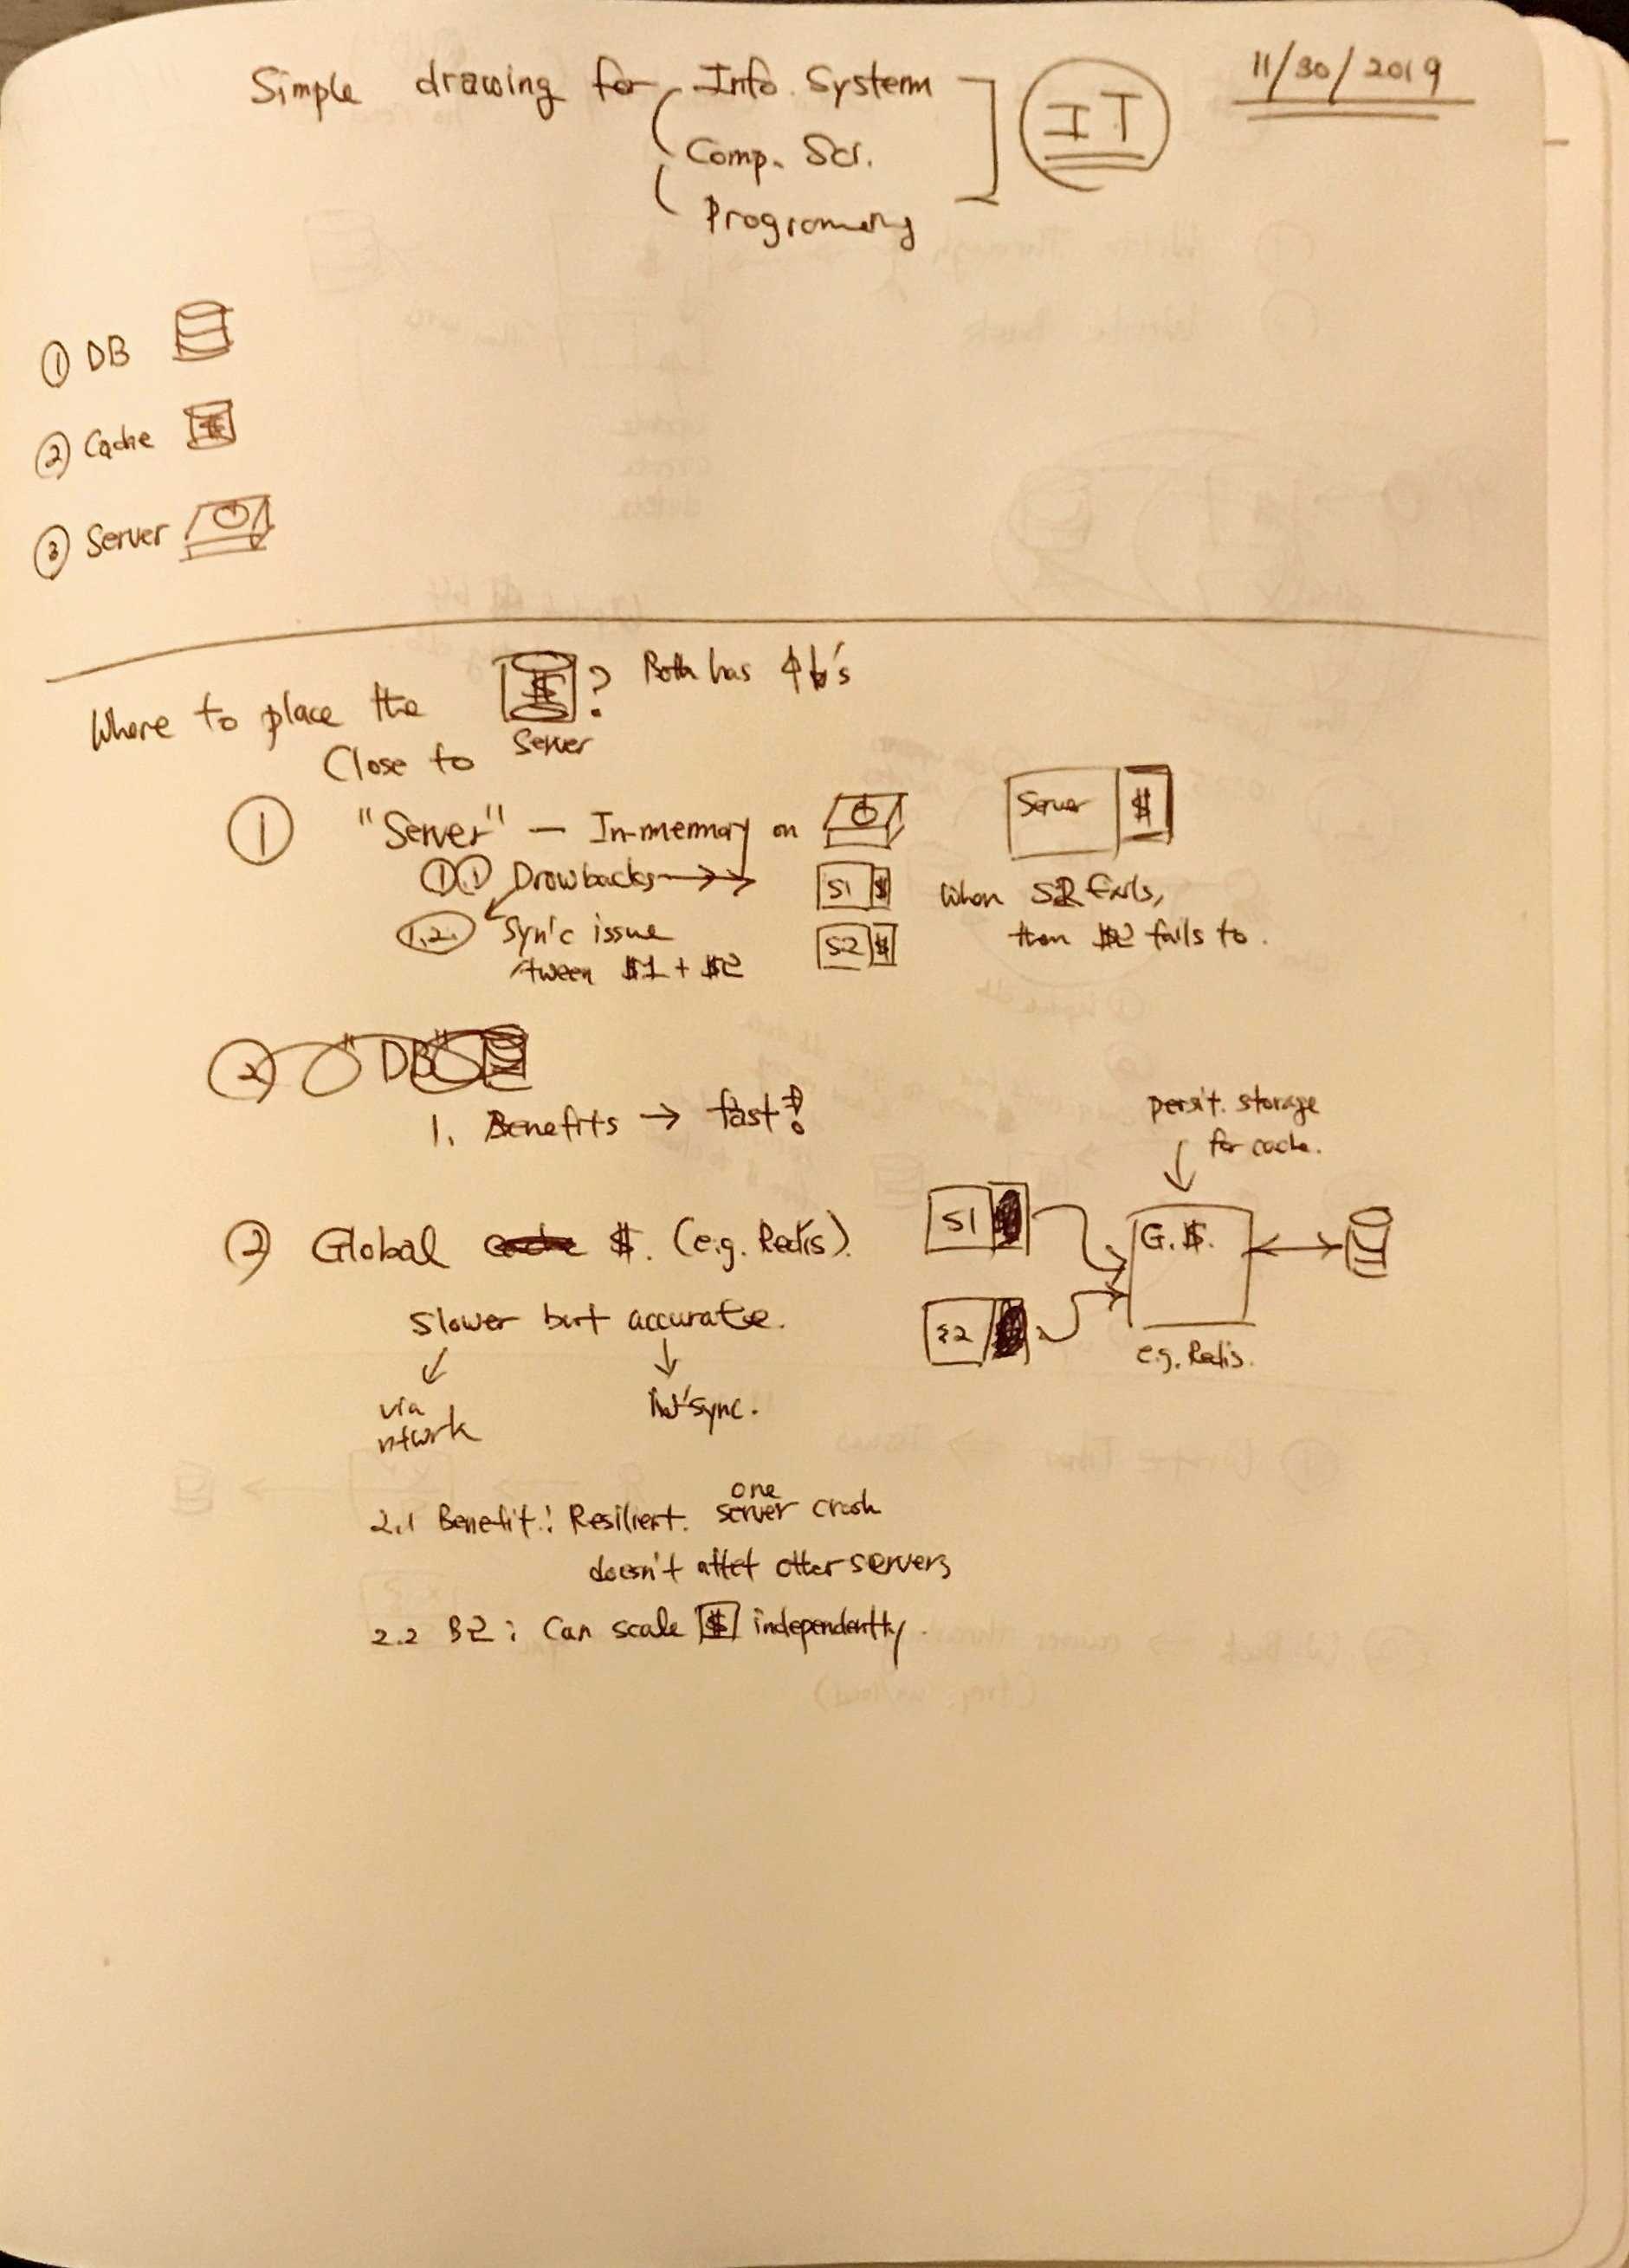 Simple drawing for Info. System
Comp. Sci.
Programming
IT
11/30/2019
① DB
② Cache $
③ Server
Where to place the $? Both has
Close to Server
① "Server" — In-memory on
Server $
1.1 Drawbacks →→
S1 $
When S2 fails,
1.2. Sync issue
S2 $
then $2 fails to.
tween $1 + $2
② "DB"
1. Benefits → fast
persit. storage
for cache.
② Global $. (e.g. Redis).
S1
G.$.
S2
e.g. Redis.
Slower but accurate.
via
ntwrk
sync.
2.1 Benefit: Resilient. one server crash
doesn't affet other servers
2.2 B2: Can scale $ independently.